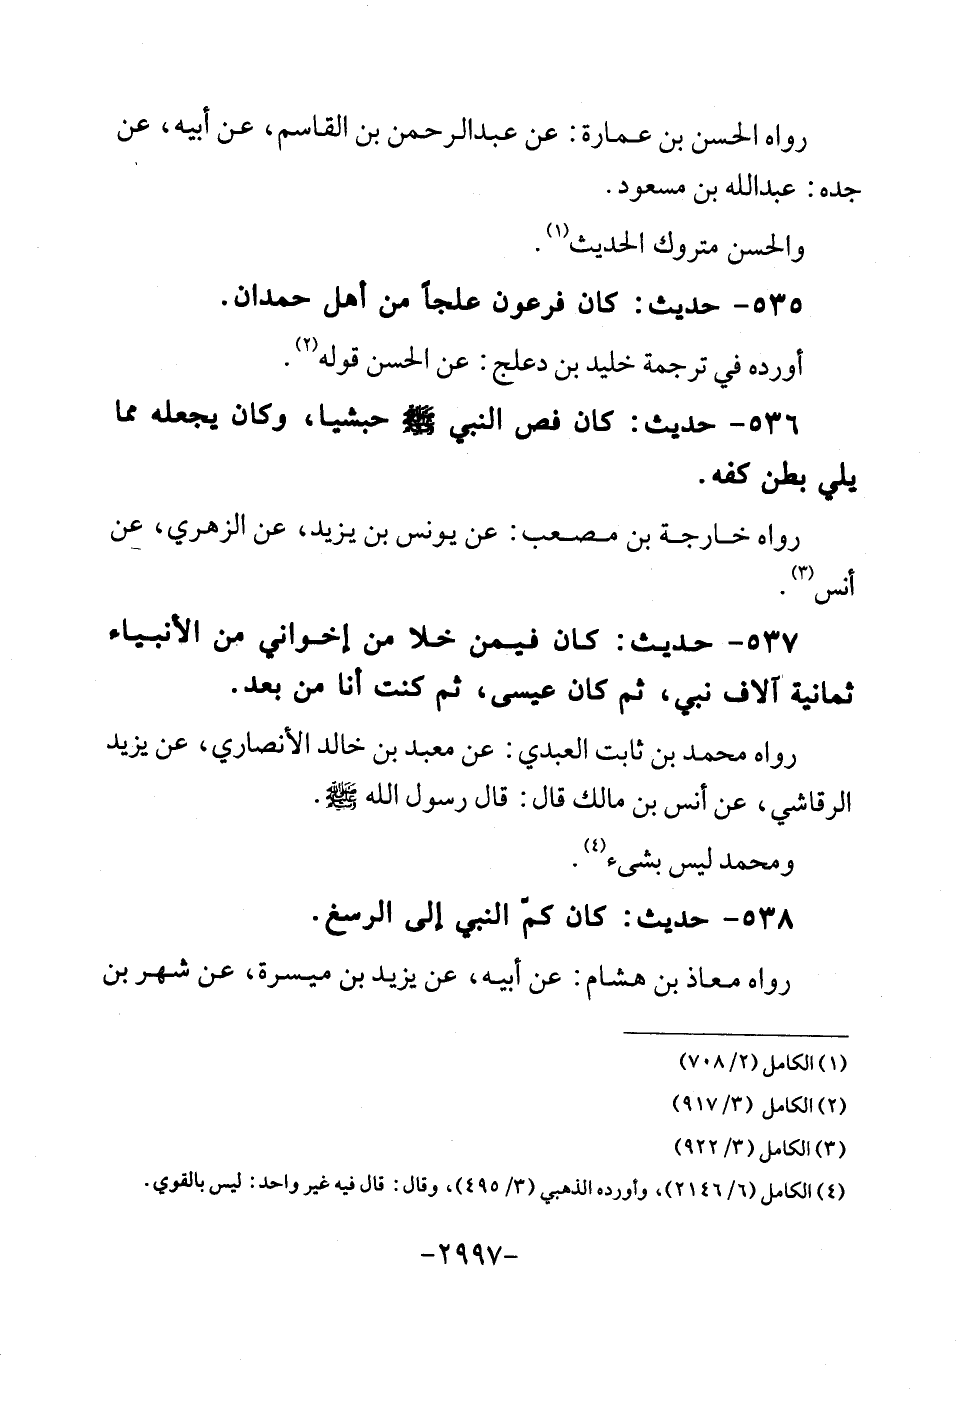 رواه الحسن بن عمارة: عن عبدالرحمن بن القاسم، عن أبيه، عن
جده: عبدالله بن مسعود.
والحسن متروك الحديث(١).
٥٣٥- حديث: كان فرعون علجاً من أهل حمدان.
أورده في ترجمة خليد بن دعلج: عن الحسن قوله(٢).
٥٣٦- حديث: كان فص النبي ﷺ حبشيا، وكان يجعله مما
يلي بطن كفه.
رواه خارجة بن مصعب: عن يونس بن يزيد، عن الزهري، عن
أنس(٣).
٥٣٧- حديث: كان فيمن خلا من إخواني من الأنبياء
ثمانية آلاف نبي، ثم كان عيسى، ثم كنت أنا من بعد.
رواه محمد بن ثابت العبدي: عن معبد بن خالد الأنصاري، عن يزيد
الرقاشي، عن أنس بن مالك قال: قال رسول الله ﷺ.
ومحمد ليس بشىء(٤).
٥٣٨- حديث: كان كمّ النبي إلى الرسغ.
رواه معاذ بن هشام: عن أبيه، عن يزيد بن ميسرة، عن شهر بن
(١) الكامل (٢/ ٧٠٨)
(٢) الكامل (٣/ ٩١٧)
(٣) الكامل (٣/ ٩٢٢)
(٤) الكامل (٦/ ٢١٤٦)، وأورده الذهبي (٣/ ٤٩٥)، وقال: قال فيه غير واحد: ليس بالقوي.
-٢٩٩٧-